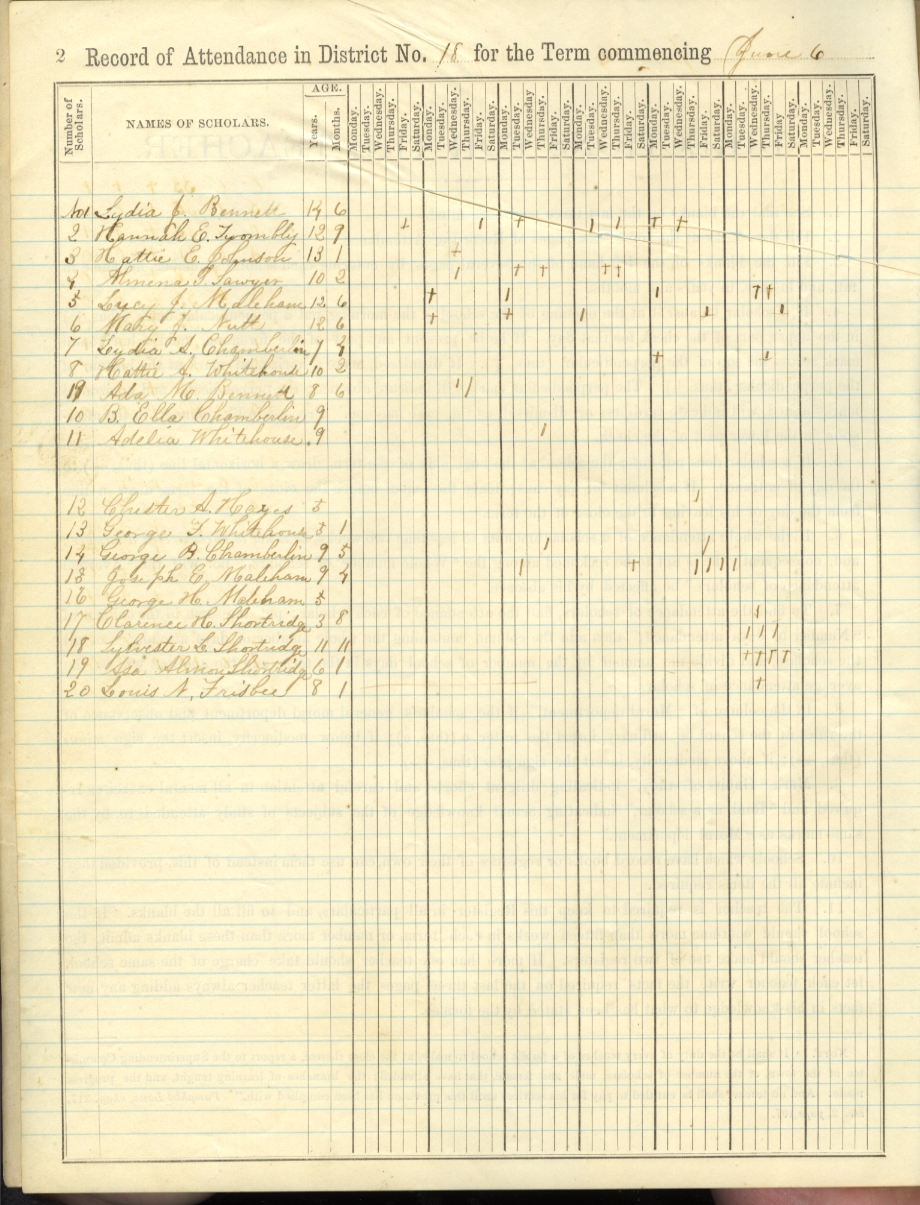 2 Record of Attendance in District No. 18 for the Term commencing June 6
Number of Scholars. NAMES OF SCHOLARS. AGE. Years. Months. Monday. Tuesday. Wednesday. Thursday. Friday. Saturday. Monday. Tuesday. Wednesday. Thursday. Friday. Saturday. Monday. Tuesday. Wednesday Thursday. Friday. Saturday. Monday. Tuesday. Wednesday. Thursday. Friday. Saturday. Monday. Tuesday. Wednesday. Thursday. Friday. Saturday. Monday. Tuesday. Wednesday. Thursday. Friday Saturday. Monday. Tuesday. Wednesday. Thursday. Friday. Saturday.
No1 Lydia J. Bennett 14 6
2 Hannah E. Twombly 12 9
3 Hattie E. Johnson 13 1
4 Almena T. Sawyer 10 2
5 Lucy J. Maleham 12 6
6 Mary J. Nutt 12 6
7 Lydia A. Chamberlin 7 4
8 Hattie A. Whitehouse 10 2
9 Ada M. Bennett 8 6
10 B. Ella Chamberlin 9
11 Adelia Whitehouse 9
12 Chester A. Hayes 5
13 George F. Whitehouse 5 1
14 George B. Chamberlin 9 5
15 Joseph E. Maleham 9 4
16 George H. Maleham 5
17 Clarence H. Shortridge 3 8
18 Sylvester L. Shortridge 11 11
19 Asa Almon Shortridge 6 1
20 Louis N. Frisbee 8 1